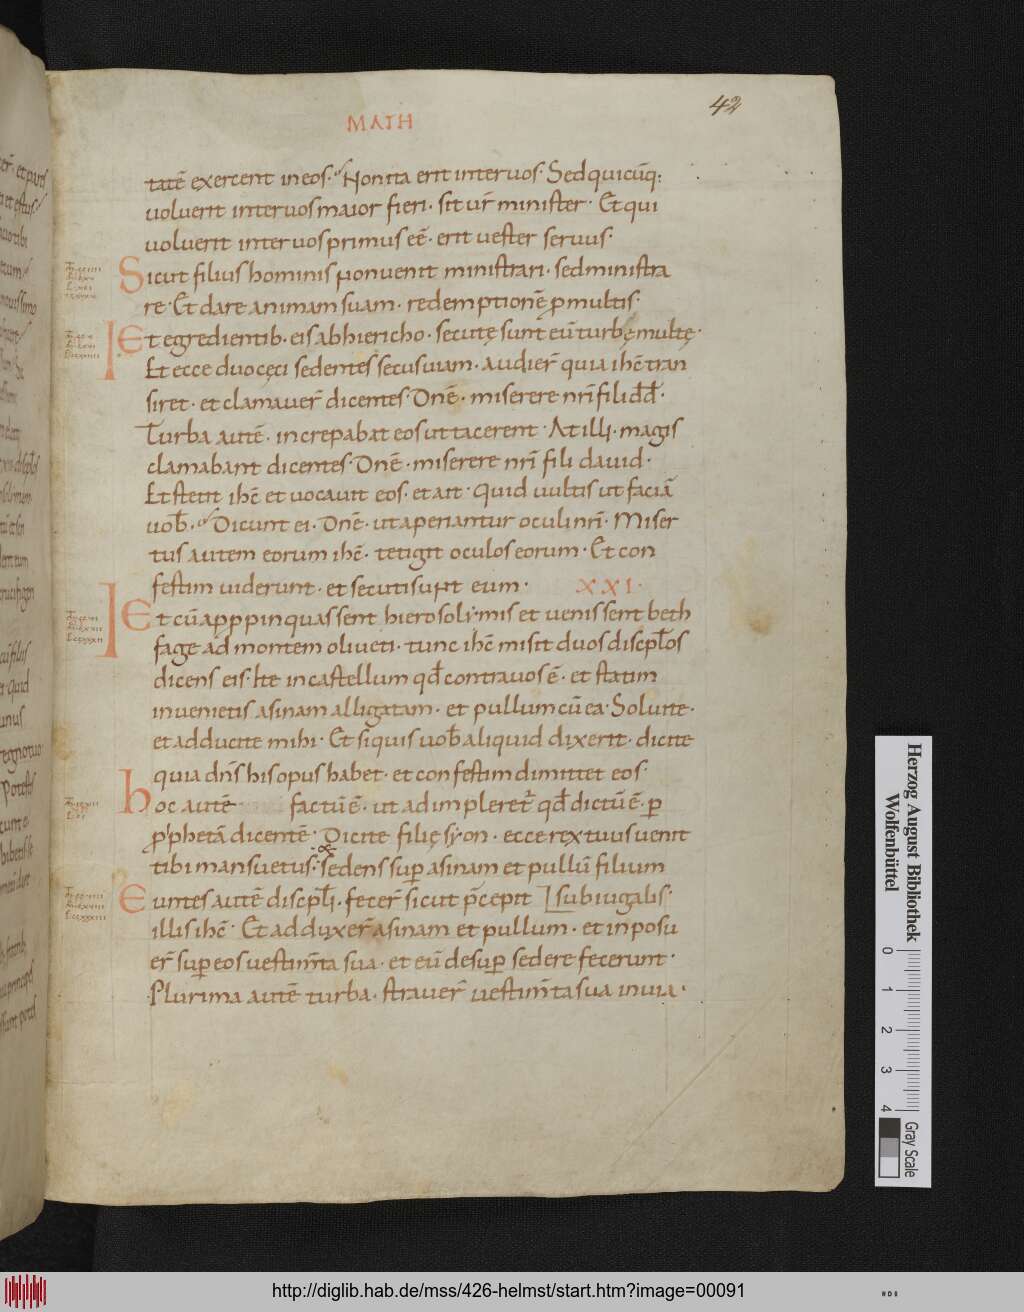 42
MATH
tatē exercent in eos. Non ita erit inter uos. Sed quicūq;
uoluerit inter uos maior fieri. sit ur̄ minister. Et qui
uoluerit inter uos primus eē. erit uester seruus.
Sicut filius hominis non uenit ministrari. sed ministra
re. Et dare animam suam. redemptionē p multis.
Et egredientib. eis ab hiericho. secutę sunt eū turbę multę.
Et ecce duo cęci sedentes secus uiam. audier̄ quia ihc̄ tran
siret. et clamauer̄ dicentes. Dnē. miserere nr̄i fili dd̄.
Turba autē. increpabat eos ut tacerent. At illi. magis
clamabant dicentes. Dnē. miserere nr̄i fili dauid.
Et stetit ihc̄ et uocauit eos. et ait. Quid uultis ut faciā
uob̄. Dicunt ei. Dnē. ut aperiantur oculi nr̄i. Miser
tus autem eorum ihc̄. tetigit oculos eorum. Et con
festim uiderunt. et secuti sunt eum. XXI.
Et cū apppinquassent hierosolymis et uenissent beth
fage ad montem oliueti. tunc ihc̄ misit duos discipl̄os
dicens eis. Ite in castellum qd̄ contra uos ē. et statim
inuenietis asinam alligatam. et pullum cū ea. Soluite.
et adducite mihi. Et si quis uob̄ aliquid dixerit. dicite
quia dn̄s his opus habet. et confestim dimittet eos.
hoc autē factū ē. ut adimpleret̄ qd̄ dictū ē. p
p̄phetā dicentē. Dicite filię syon. ecce rex tuus uenit
tibi mansuetus. & sedens sup asinam et pullū filium
Euntes autē discipl̄i. fecer̄ sicut p̄cepit subiugalis.
illis ihc̄. Et adduxer̄ asinam et pullum. et inposu
er̄ sup eos uestim̄ta sua. et eū desup sedere fecerunt.
Plurima autē turba. strauer̄ uestim̄ta sua in uia.
Herzog August Bibliothek
Wolfenbüttel
0 1 2 3 4
Gray Scale
http://diglib.hab.de/mss/426-helmst/start.htm?image=00091